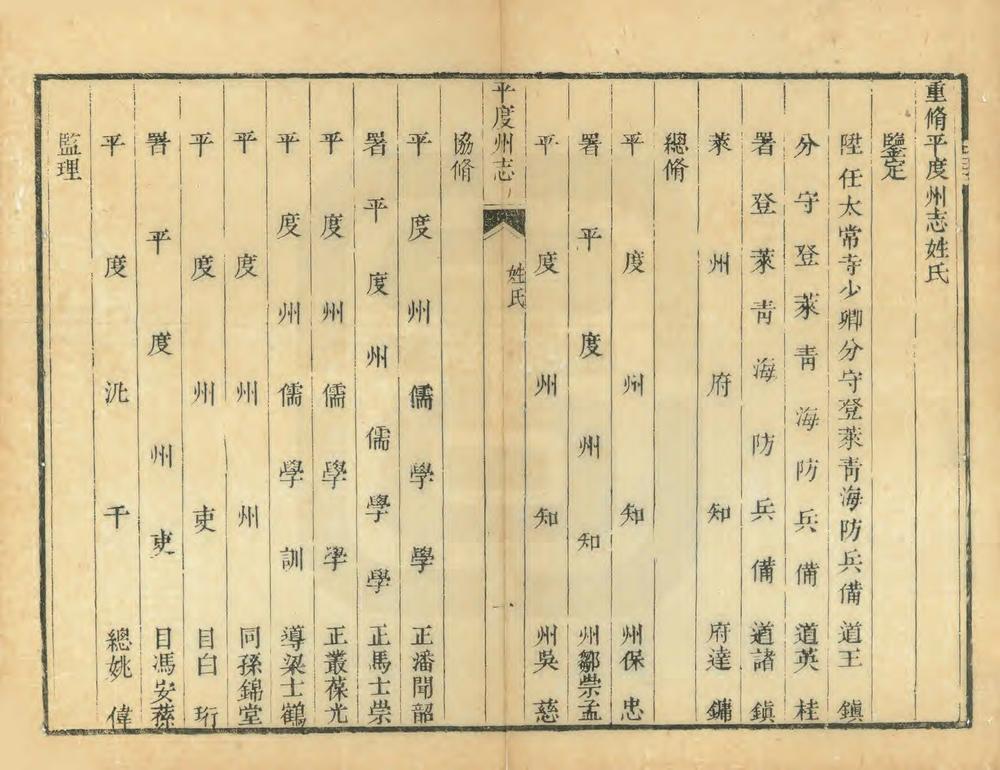 重脩平度州志姓氏
鑒定
陞任太常寺少卿分守登萊青海防兵備道王鎮
分守登萊青海防兵備道英桂
署登萊青海防兵備道諸鎮
萊州府知府達鏞
總脩
平度州知州保忠
署平度州知州鄒崇孟
平度州知州吳慈
平度州志
姓氏
一
協脩
平度州儒學學正潘聞韶
署平度州儒學學正馬士崇
平度州儒學學正叢葆光
平度州儒學訓導梁士鶴
平度州州同孫錦堂
平度州吏目白珩
署平度州吏目馮安
平度汛千總姚偉
監理